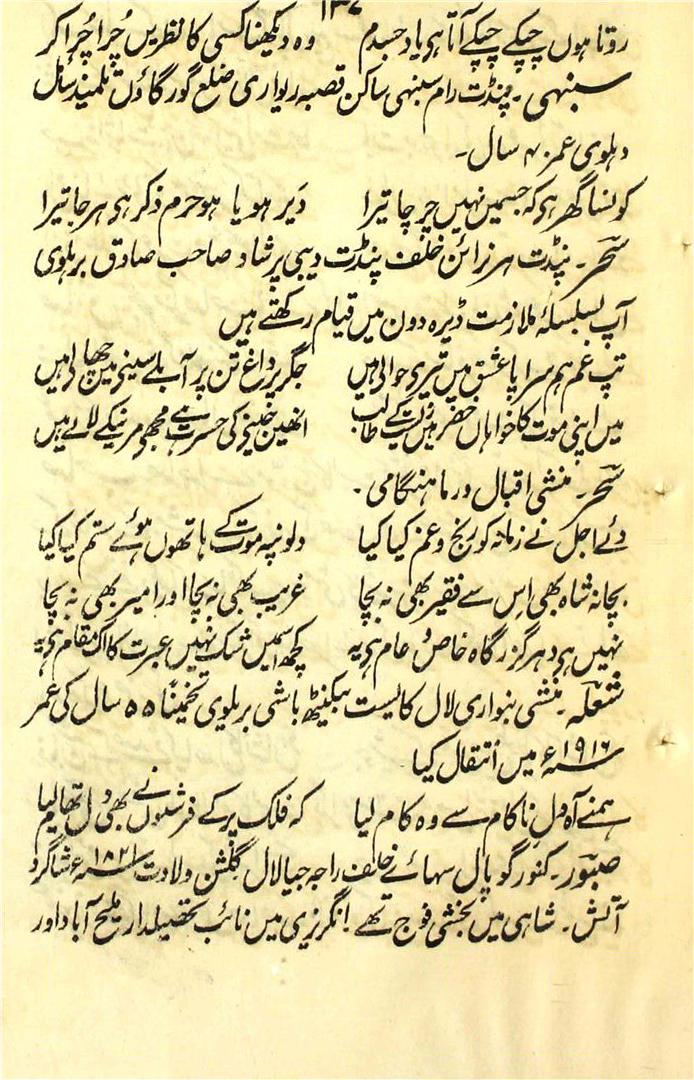 ۱۳۷
روتا ہوں چپکے چپکے آتا ہی یاد جسدم وہ دیکھنا کسی کا نظریں چُرا چُرا کر
سنبھی ۔ پنڈت رام سنبھی ساکن قصبہ ریواری ضلع گورگاؤں تلمیذ سائل
دہلوی عمر ۴۰ سال ۔
کونسا گھر ہی کہ جسمیں نہیں چرچا تیرا دَیر ہو یا ہو حرم ذکر ہی ہر جا تیرا
سحر ۔ پنڈت ہر نرائن خلف پنڈت دیبی پرشاد صاحب صادق بریلوی
آپ بسلسلۂ ملازمت ڈیرہ دون میں قیام رکھتے ہیں
تپ غم ہم سراپا عشق میں تیری حوالی ہیں جگر پر داغ تن پر آبلے سینے میں چھالی ہیں
میں اپنی موت کا خواہاں خضر ہیں زیست کے طالب انھیں جینے کی حسرت ہے مجھی مرنیکے لالے ہیں
سحر ۔ منشی اقبال ورما ہنگامی ۔
دئے اجل نے زمانہ کو رنج و غم کیا کیا دلونپہ موت کے ہاتھوں ہوئے ستم کیا کیا
بچا نہ شاہ بھی اِس سے فقیر بھی نہ بچا غریب بھی نہ بچا اور امیر بھی نہ بچا
نہیں ہی دہر گزرگاہ خاص و عام ہی یہ کچھ اسمیں شک نہیں عبرت کا اک مقام ہی یہ
شعلہ ۔ منشی بنواری لال کایست بیکنٹھ باشی بریلوی تخمیناً ۵۵ سال کی عمر
۱۹۱۶ء میں اُنتقال کیا
ہمنے آہ دلِ ناکام سے وہ کام لیا کہ فلک پر کے فرشتوں نے بھی دل تھام لیا
صبور ۔ کنور گوپال سہائے خلف راجہ جیالال گلشن ولادت ۱۸۲۱ء شاگرد
آتش ۔ شاہی میں بخشی فوج تھے ۔ انگریزی میں نائب تحصیلدار ملیح آباد اور